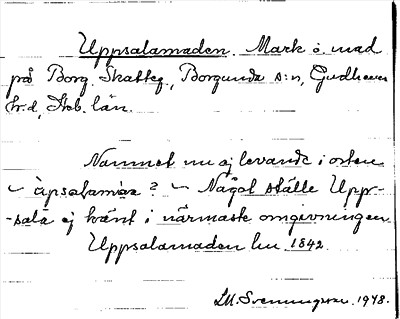 Uppsalamaden. Mark o. mad
på Borg. Skatteg., Borgunda s:n, Gudhems
h:d, Skb. län.
Namnet nu ej levande i orten
Något ställe Upp-
-sala ej känt i närmaste omgivningen
Uppsalamaden Lm 1842.
LM. Svenungsson. 1948.